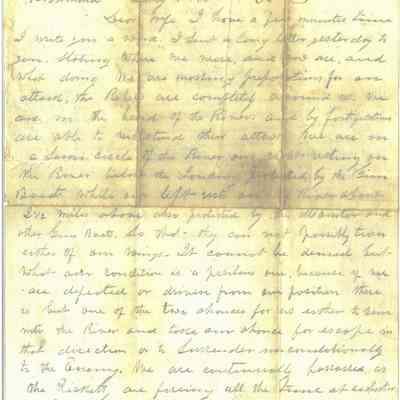 Dear Wife I have a few minutes time
I write you a word. I Sent a long letter yesterday to
you. Stating where we were, and are, and
what doing We are making preparations for an
attack, the Rebels are completly around us We
are on the bend of the River and by fortifications
are able to withstand their attack We are in
a Semi circle of the River our resting on
the River below the Landing protected by the Gun
Boats, while our left rests on the River about
miles above also protected by the Monitor and
other Gun Boats. So that they can not possibly turn
either of our wings. It cannot be denied but
what our condition is a perilous one, because if we
are defeated or driven from our position there
is but one of the two chances for us either to
into the River and take our chance for escape in
that direction or to Surrender unconditionally
to the Enemy. We are continually harrassed, as
the Picketts are fireing all the time